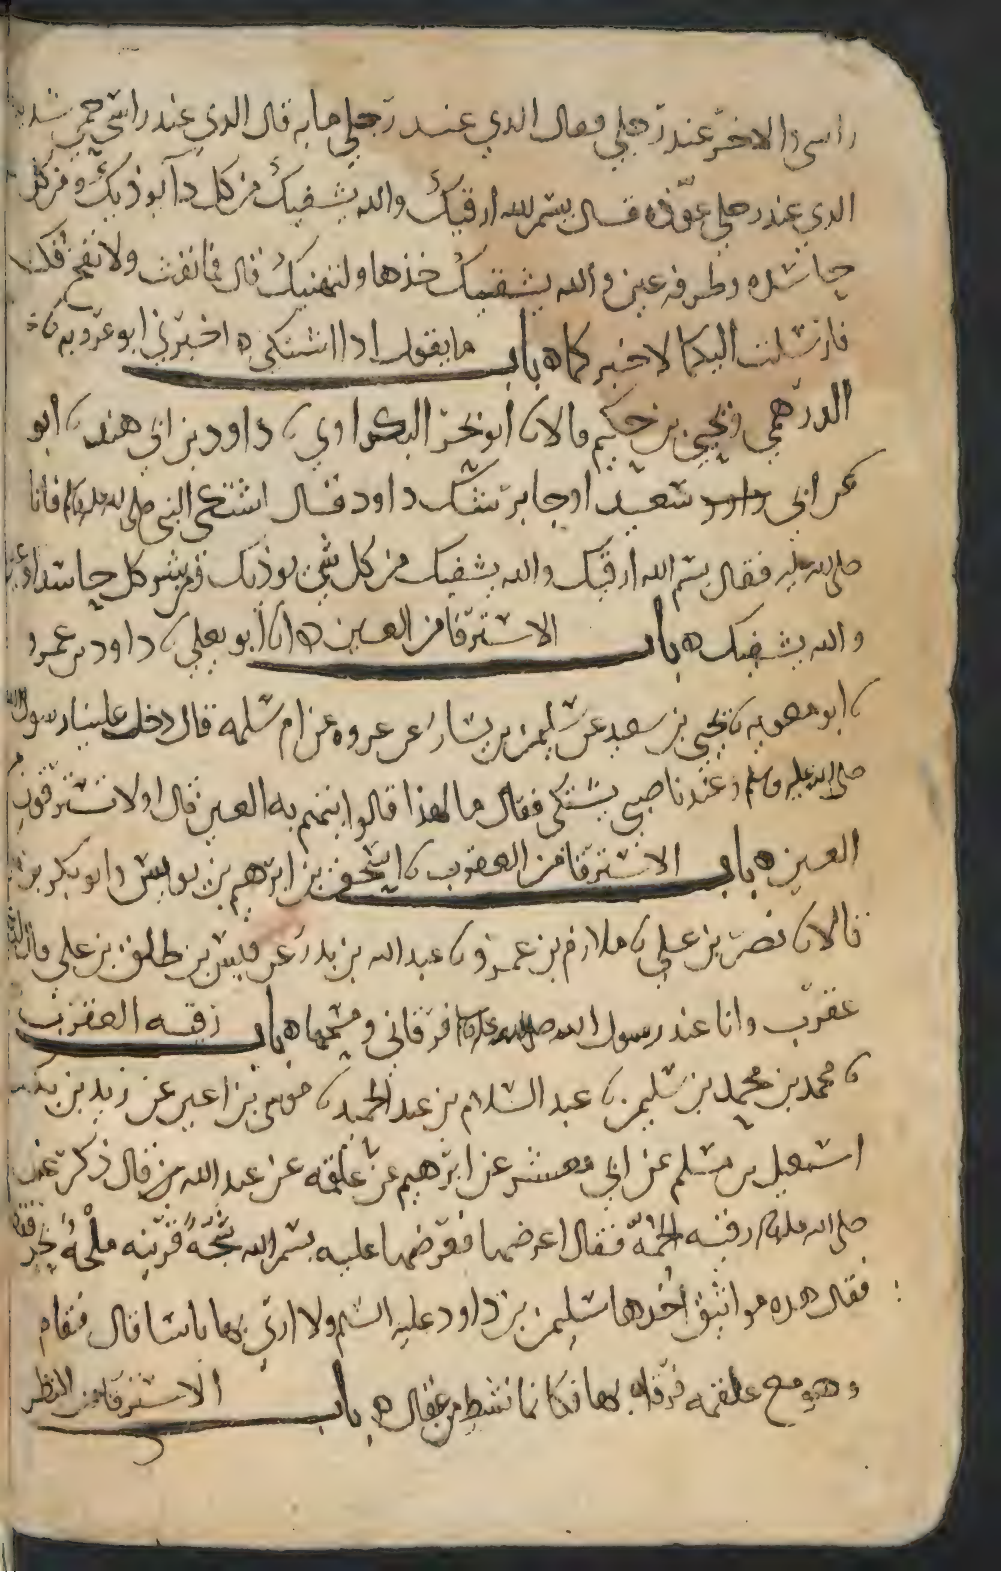 راسي والاخر عند رجلي فقال الذي عند رجلي ما به قال الذي عند راسي حمى شديدة
الذي عند رجلي عوّذه قال بسم لله ارقيك والله يشفيك من كل دآ يوذيك ومن كل
حاسده وطرفه عين والله يشفيك خذها ولتهنيك قال فما نفث ولا نفخ فكـ
فارسلت اليكما لاخبركما ه باب ما يقول اذا اشتكى ه اخبرني ابو عروبه نا
الدرهمي ويحيى بن حكيم قالا نا ابو بحر البكراوي نا داود بن ابي هند نا ابو
عن ابي سعيد او جابر شك داود قال اشتكى النبي صلى لله عليه وسلم فاتا
صلى لله عليه فقال بسم الله ارقيك والله يشفيك من كل شي يوذيك ومن شر كل حاسد او عين
والله يشفيك ه باب الاسترقا من العين ه انا ابو يعلى نا داود بن عمرو
نا ابو معويه نا يحيى بن سعيد عن سليمن بن يسار عن عروه عن ام سلمه قال دخل علينا رسول الله
صلى الله عليه وسلم وعندنا صبي يشتكي فقال ما لهذا قالوا نتهم به العين قال اولا تسترقون من
العين ه باب الاسترقا من العقرب نا اسحق بن ابرهيم بن يونس وابو بكر بن
قالا نا نصر بن علي نا ملازم بن عمرو نا عبد الله بن بدر عن قيس بن طلق بن علي قال لدغتني
عقرب وانا عند رسول الله صلى الله عليه وسلم فرقاني ومسحها ه باب رقيه العقرب
نا محمد بن محمد بن سليمن نا عبد السلام بن عبد الحميد نا موسى بن اعين عن زيد بن بكـ
اسمعيل بن مسلم عن ابي معشر عن ابرهيم عن علقمه عن عبد الله قال ذكر عند
صلى الله عليه وسلم رقيه الحمّة فقال اعرضها فعرضها عليه بسم الله شجّة قرنيه ملحة بحر قفطا
فقال هذه مواثيق اخذها سليمن بن داود عليه السلم ولا ارى بها باسا قال فقام
وهو مع علقمه فرقاه بها فكانما نشط من عقال ه باب الاسترقا من النظر